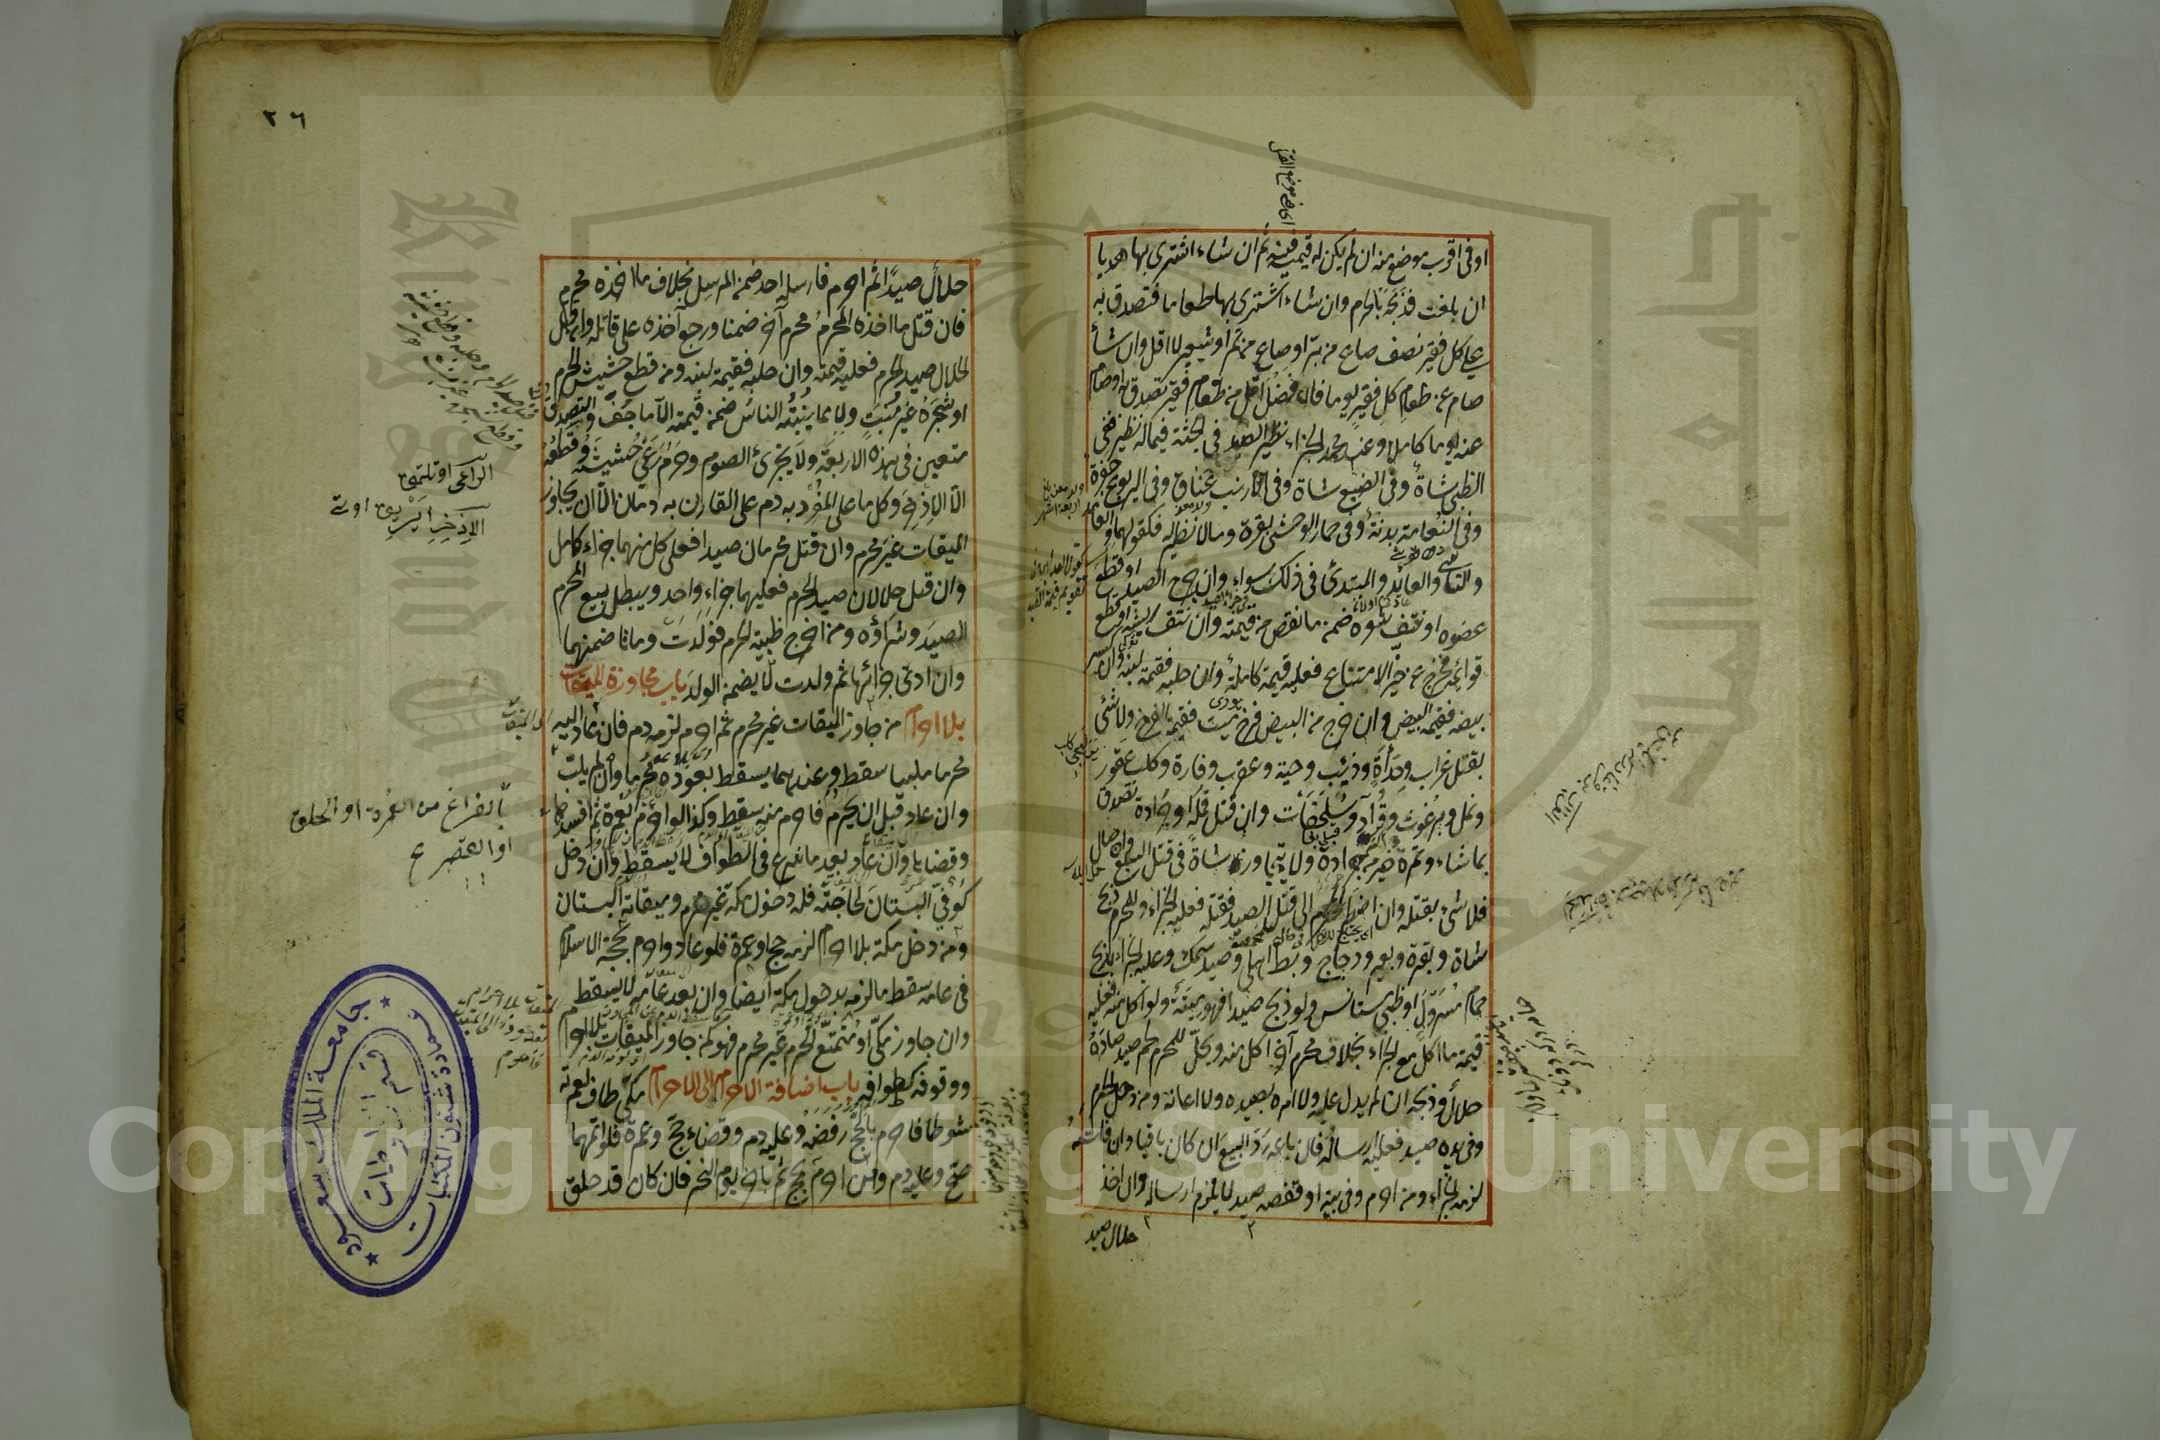 اى فى موضع القتل
او فى اقرب موضع منه ان لم يكن له قيمة فيه ثم ان شاء اشترى بها هديا
ان بلغت فذبحه بالحرم وان شاء اشترى بها طعاما فتصدق به
على كل فقير نصف صاع من بر او صاع من تمر او شعير لا اقل وان شاء
صام عن طعام كل فقير يوما فان فضل اقل من طعام فقير تصدق به او صام
عنه يوما كاملا وعند محمد الجزاء نظير الصيد فى الجثة فيما له نظير ففى
الظبى شاة وفى الضبع شاة وفى الارنب عناق وفى اليربوع جفرة
وفى النعامة بدنة وفى حمار الوحش بقرة وما لا نظير له فكقولهما والعامد
والناسى والعائد والمبتدئ فى ذلك سواء وان جرح الصيد او قطع
عضوه او نتف شعره ضمن ما نقص من قيمته وان نتف ريشه او قطع
قوائمه فخرج عن حيز الامتناع فعليه قيمة كاملة وان حلبه فقيمة لبنه وان كسر
بيضه فقيمة البيض وان خرج من البيض فرخ ميت فقيمة الفرخ ولا شئ
بقتل غراب وحدأة وذئب وحية وعقرب وفارة وكلب عقور
ونمل وبرغوث وقراد وسلحفات وان قتل قملة او جرادة تصدق
بما شاء وتمرة خير من جرادة ولا يتجاوز شاة فى قتل السبع وان صال
فلا شئ بقتله وان اضطر المحرم الى قتل الصيد فقتله فعليه الجزاء وللمحرم ذبح
شاة وبقرة وبعير ودجاج وبط اهلى وصيد سمك وعليه الجزاء بذبح
حمام مسرول او ظبى مستانس ولو ذبح صيدا فهو ميتة ولو اكل منه فعليه
قيمة ما اكل مع الجزاء بخلاف محرم آخر اكل منه ويحل للمحرم لحم صيد صاده
حلال وذبحه ان لم يدل عليه ولا امره بصيده ولا اعانه ومن دخل الحرم
وفى يده صيد فعليه ارساله فان باعه رد البيع ان كان باقيا وان فات
لزمه الجزاء ومن احرم وفى بيته او قفصه صيد لا يلزم ارساله وان اخذ
حلال صيد
٢٦
حلال صيدا ثم احرم فارسله احد ضمن المرسل بخلاف ما اخذه محرم
فان قتل ما اخذه المحرم محرم آخر ضمنا ورجع آخذه على قاتله وان قتل
الحلال صيد الحرم فعليه قيمته وان حلبه فقيمة لبنه ومن قطع حشيش الحرم
او شجره غير منبت ولا مما ينبته الناس ضمن قيمته الا ما جف والتصدق
متعين فى هذه الاربعة ولا يجزئ الصوم وحرم رعى حشيشه وقطعه
الا الاذخر وكل ما على المفرد به دم على القارن به دمان الا ان يجاوز
الميقات غير محرم وان قتل محرمان صيدا فعلى كل منهما جزاء كامل
وان قتل حلالان صيد الحرم فعليهما جزاء واحد ويبطل بيع المحرم
الصيد وشراؤه ومن اخرج ظبية الحرم فولدت وماتا ضمنهما
وان ادى جزائها ثم ولدت لا يضمن الولد باب مجاوزة الميقات
بلا احرام من جاوز الميقات غير محرم ثم احرم لزمه دم فان عاد اليه
محرما ملبيا سقط وعندهما يسقط بعوده محرما وان لم يلب
وان عاد قبل ان يحرم فاحرم منه سقط وكذا لو احرم بعمرة ثم افسدها
وقضاها وان عاد بعد ما شرع فى الطواف لا يسقط وان دخل
كوفى البستان لحاجته فله دخول مكة غير محرم وميقاته البستان
ومن دخل مكة بلا احرام لزمه حج او عمرة فلو عاد واحرم بحجة الاسلام
فى عامه سقط ما لزمه بدخول مكة ايضا وان بعد عامه لا يسقط
وان جاوز مكى او متمتع الحرم غير محرم فهو كمن جاوز الميقات بلا احرام
ووقوفه كطوافه باب اضافة الاحرام الى الاحرام مكى طاف لعمرته
شوطا فاحرم بالحج رفضه وعليه دم وقضاء حج وعمرة فلو اتمهما
صح وعليه دم ومن احرم بحج ثم باخر يوم النحر فان كان قد حلق
الى الميقات
بالفراغ من العمرة او الحلق
جامعة الملك سعود
عمادة شئون المكتبات
قسم المخطوطات
Copyright © King Saud University
King Saud University